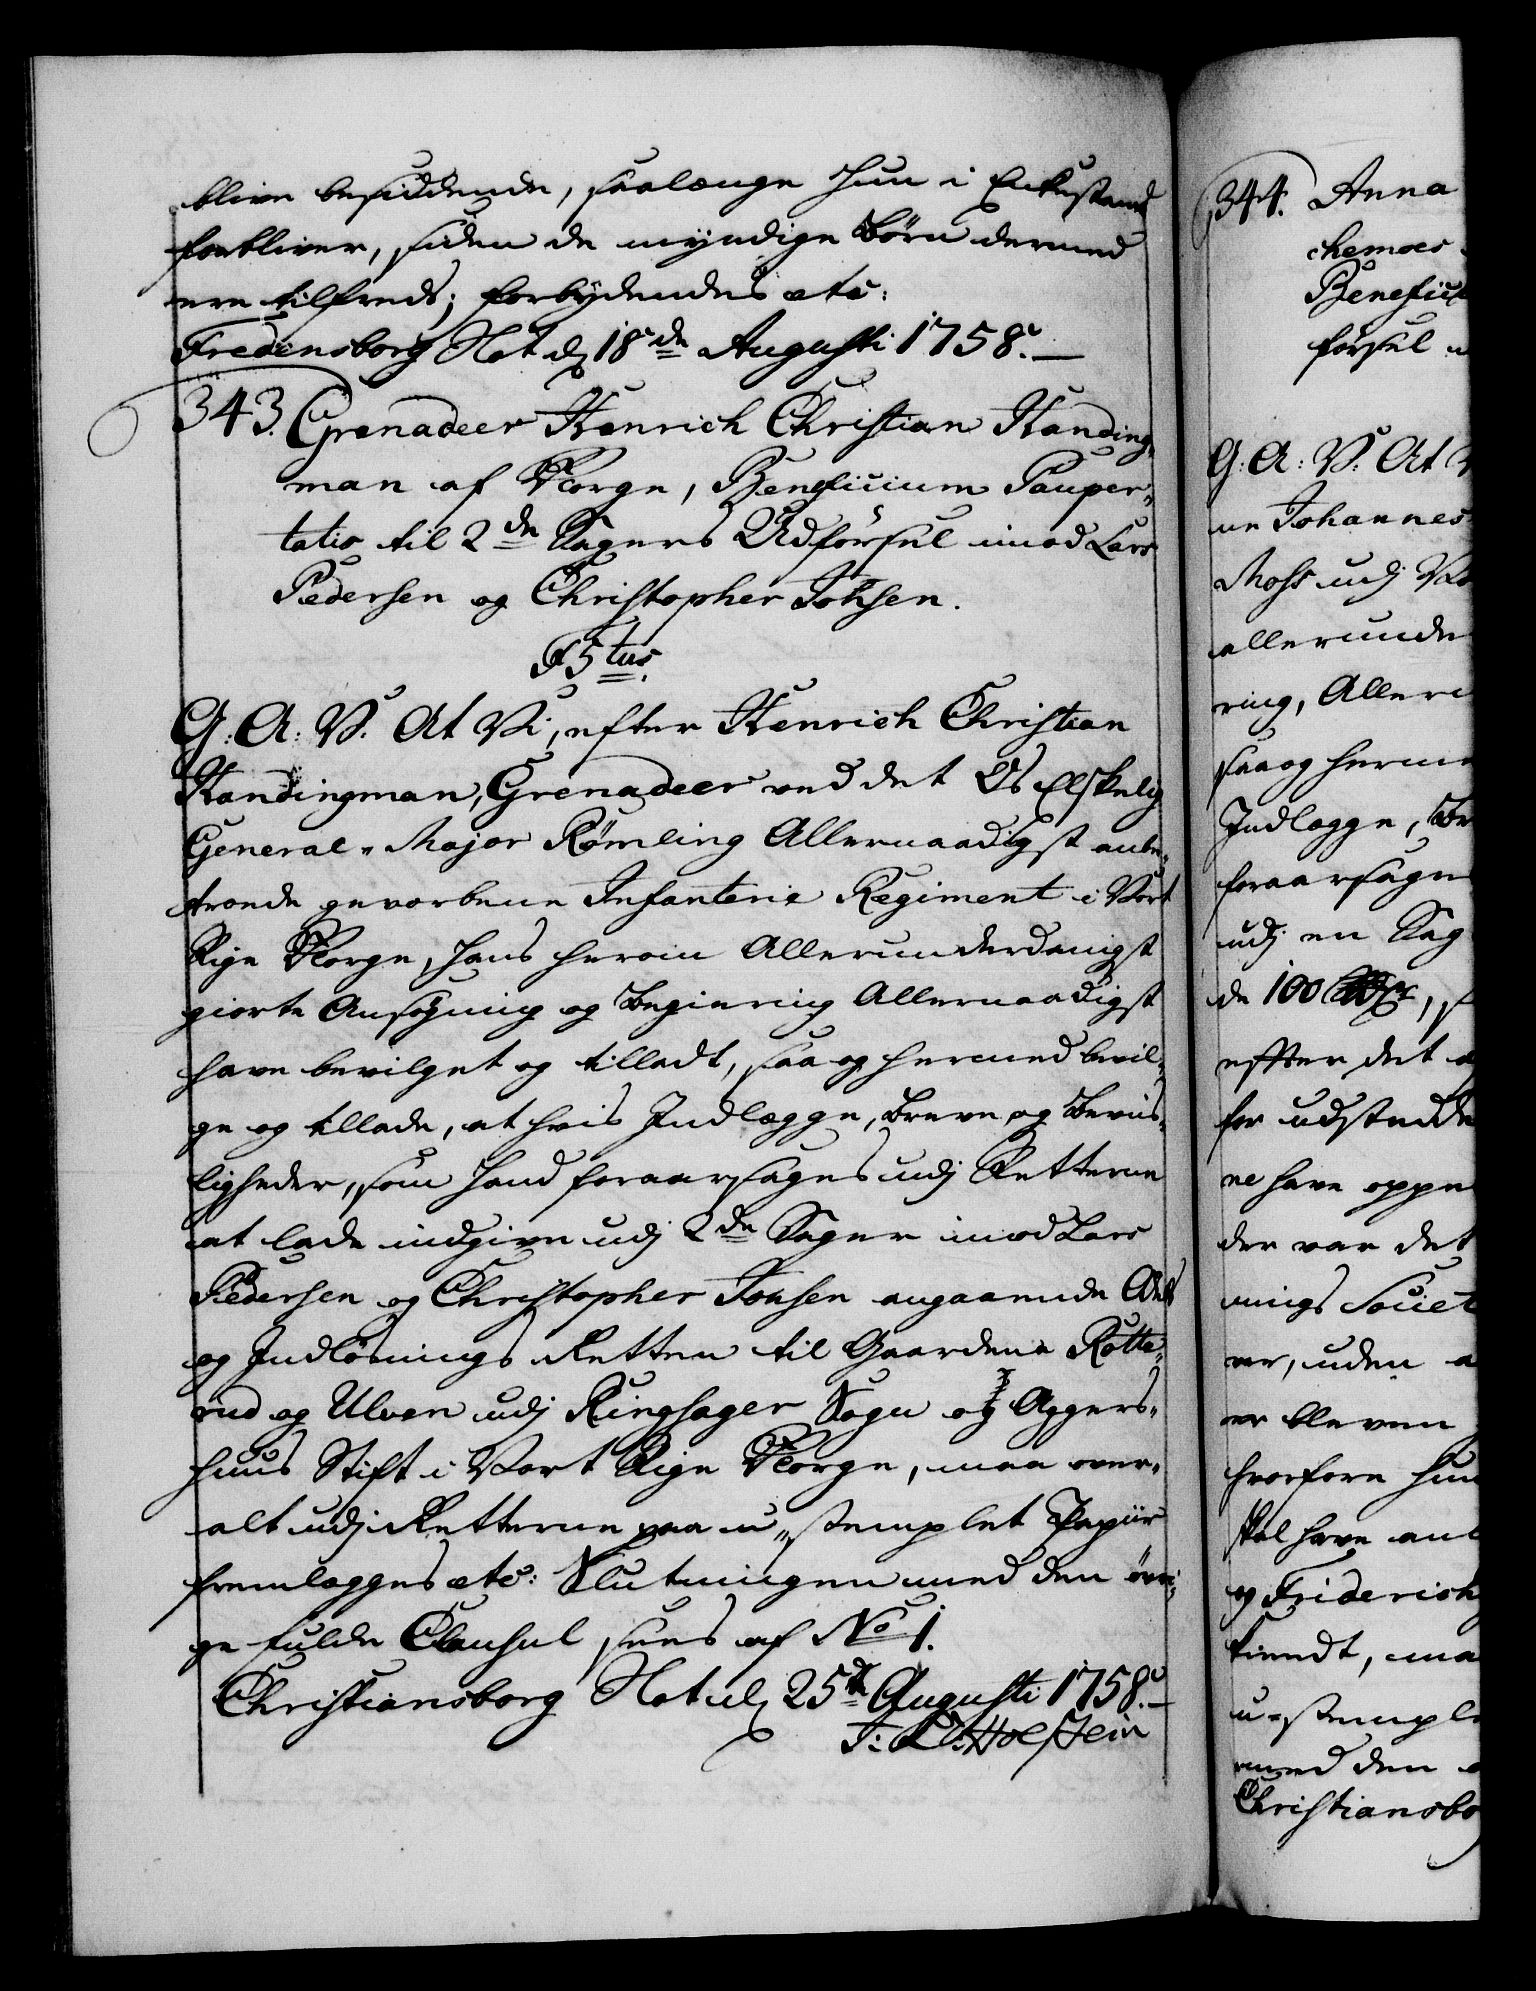 blive besiddende, saalænge hun i Enkestand
forbliver, siden de myndige Börn dermed
ere tilfreds; forbydendes etc:
Fredensborg Slot d. 18de Augusti 1758.
343. Grenadeer Henrich Christian Handing-
man af Norge, Beneficium Pauper-
tatis til 2de Sagers Udförsel imod Lars
Pedersen og Christopher Johsen.
F 5tus.
G: A: V: At Vi, efter Henrich Christian
Handingman, Grenadeer ved det Os Elskelig
General-Major Römling Allernaadigst anbe-
troede gevorbene Infanterie Regiment i Vort
Rige Norge, hans herom Allerunderdanigst
giorte Ansögning og Begiering Allernaadigst
have bevilget og tilladt, saa og hermed bevil-
ge og tillade, at hvis Indlægge, Breve og Beviis-
ligheder, som hand foraarsages udj Retterne
at lade indgive udj 2de Sager imod Lars
Pedersen og Christopher Johsen angaaende Odels
og Indlösnings Retten til Gaardene Rotte-
rud og Ulven udj Ringsager Sogn og Aggers-
huus Stift i Vort Rige Norge, maa over-
alt udj Retterne paa u-stemplet Papiir
fremlægges etc: Slutningen med den övri-
ge fulde Clausul sees af No 1.
Christiansborg Slot d. 25de Augusti 1758.
J: L: Holstein
344. Anna
chemoes
Benefici
forsel
G: A: V: At V
ne Johannes
Moss udj
allerunde
ring, Allern
saa og herme
Indlægge, Br
foraarsages
udj en Sag
de 100 Rdr,
efter det
for udstedde
ne have oppe
der var det
nings Societ
ver, uden
er bleven
hvorfore hun
skal have an
og Friderich
kiendt, maa
u-stemple
med den
Christiansbo